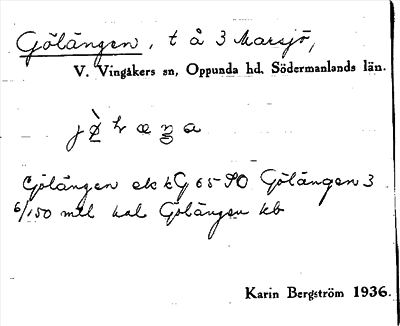 Gölängen, t å 3 Marsjö,
V. Vingåkers sn, Oppunda hd, Södermanlands län.
Gölängen ek kG 65 PO Gölängen 3
6/150 mtl kal Gölängen kb
Karin Bergström 1936.